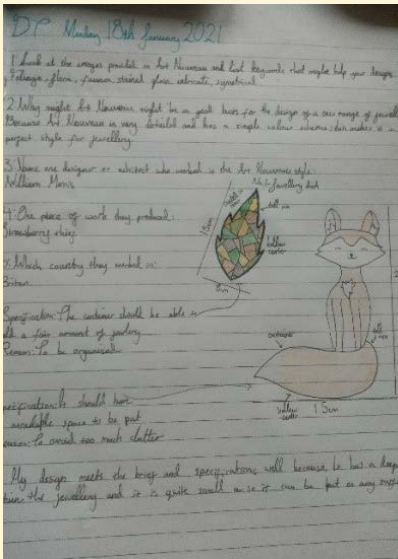 DT Monday 18th January 2021
1. Look at the images provided in Art Nouveau and list keywords that might help your designs
Foliage, flora, fauna, stained glass, intricate, symetrical
2. Why might Art Nouveau might be a good basis for the design of a new range of jewellery
Because Art Nouveau is very detailed and has a simple colour scheme this makes it a
perfect style for jewellery.
3. Name one designer or architect who worked in the Art Nouveau style:
William Morris
4. One piece of work they produced:
Strawberry thief
5. Which country they worked in:
Britain
Jewellery dish
15cm
8cm
hollow
centre
Specification: The container should be able to
hold a fair amount of jewellery
Reason: To be organised
container
specification: It should have
available space to be put
reason: To avoid too much clutter
hollow
centre
15cm
My design meets the brief and specifications well because it has a deep
the jewelling and it is quite small so it can be put